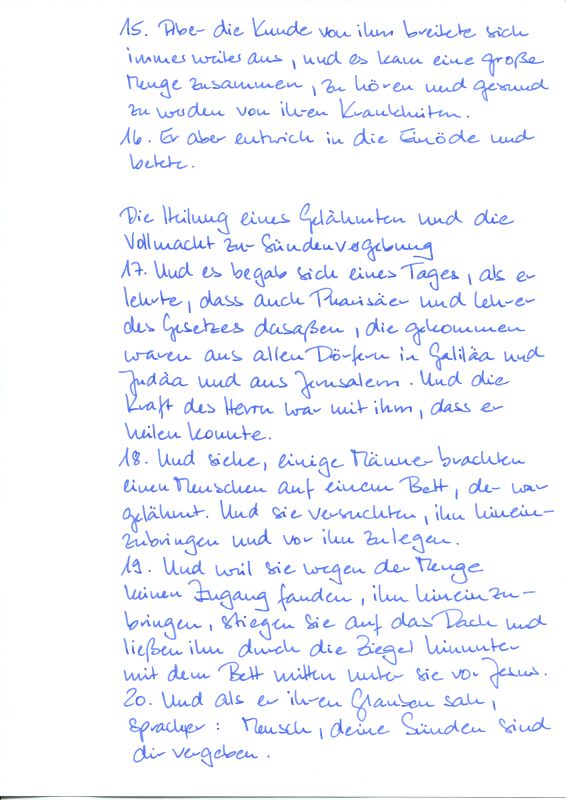 15. Aber die Kunde von ihm breitete sich
immer weiter aus, und es kam eine große
Menge zusammen, zu hören und gesund
zu werden von ihren Krankheiten.
16. Er aber entwich in die Einöde und
betete.
Die Heilung eines Gelähmten und die
Vollmacht zur Sündenvergebung
17. Und es begab sich eines Tages, als er
lehrte, dass auch Pharisäer und Lehrer
des Gesetzes dasaßen, die gekommen
waren aus allen Dörfern in Galiläa und
Judäa und aus Jerusalem. Und die
Kraft des Herrn war mit ihm, dass er
heilen konnte.
18. Und siehe, einige Männer brachten
einen Menschen auf einem Bett, der war
gelähmt. Und sie versuchten, ihn hinein-
zubringen und vor ihn zu legen.
19. Und weil sie wegen der Menge
keinen Zugang fanden, ihn hineinzu-
bringen, stiegen sie auf das Dach und
ließen ihn durch die Ziegel hinunter
mit dem Bett mitten unter sie vor Jesus.
20. Und als er ihren Glauben sah,
sprach er: Mensch, deine Sünden sind
dir vergeben.